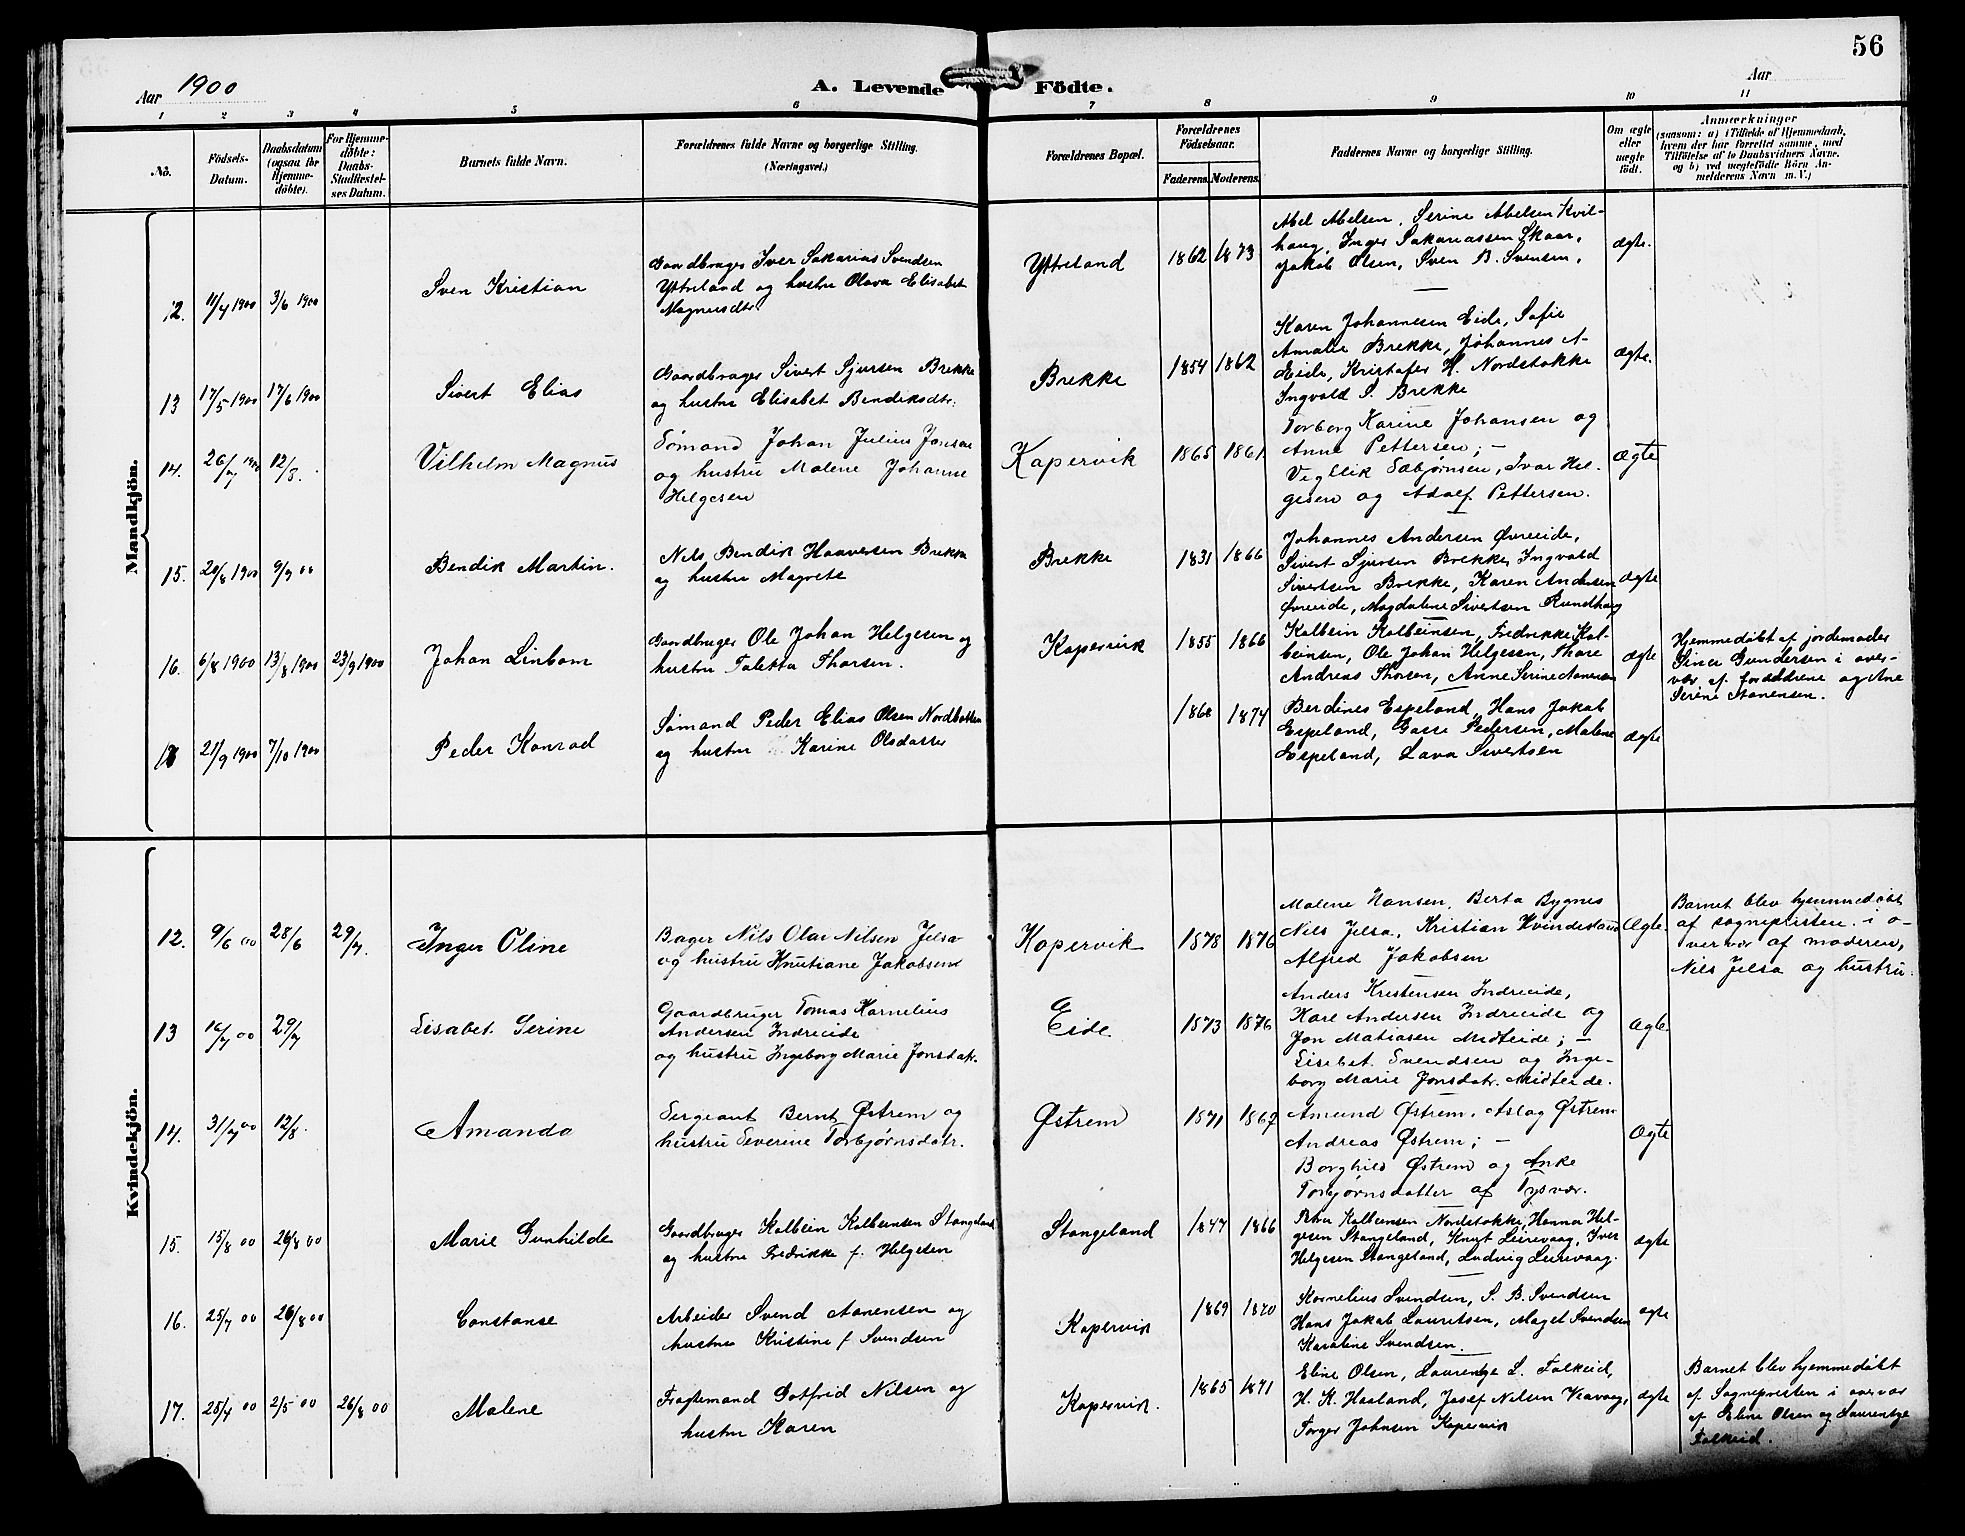 56
Aar 1900
A. Levende Födte.
Aar
1 2 3 4 5 6 7 8 9 10 11
No.
Födsels-
Datum.
Daabsdatum
(ogsaa for
Hjemme-
döbte).
For Hjemme-
döbte:
Daabs-
Stadfæstel-
ses Datum.
Barnets fulde Navn.
Forældrenes fulde Navne og borgerlige Stilling.
(Næringsvei.)
Forældrenes Bopæl.
Forældrenes
Födselsaar.
Faderens. Moderens.
Faddernes Navne og borgerlige Stilling.
Om ægte
eller
uægte
födt.
Anmærkninger
(saasom: a) i Tilfælde af Hjemmedaab,
hvem der har forrettet samme, med
Tilföielse af to Daabsvidners Navne.
og b) ved uægtefödte Börn An-
melderens Navn m. V.)
Mandkjön.
12. 11/4 1900 3/6 1900
Sven Kristian
Gaardbruger Iver Sakarias Svendsen
Ytreland og hustru Olava Elisabet
Magnusdtr.
Ytreland
1862 1873
Abel Abelsen, Serine Abelsen Kvil-
haug, Inger Sakariassen Skaar,
Jakob Olsen, Sven B. Svensen,
ægte.
13 17/5 1900 17/6 1900
Sivert Elias
Gaardbruger Sivert Sjursen Brekke
og hustru Elisabet Bendiksdtr.
Brekke
1854 1862
Karen Johannesen Eide, Sofie
Amalie Brekke, Johannes A-
Eide, Kristofer H. Nordstokke
Ingvald S. Brekke
ægte.
14. 26/7 1900 12/8.
Vilhelm Magnus
Sømand Johan Julius Jonsen
og hustru Malene Johanne
Helgesen
Kopervik
1865 1861
Torborg Karine Johansen og
Anne Pettersen; -
Vegleik Sæbjørnsen, Ivar Hel-
gesen og Adolf Pettersen.
Ægte
15. 20/8 1900 9/9 00
Bendik Martin.
Nils Bendik Haaversen Brekke
og hustru Magrete
Brekke
1831 1866
Johannes Andersen Øvreeide,
Sivert Sjursen Brekke, Ingvald
Sivertsen Brekke, Karen Andersen
Øvreeide, Magdalene Sivertsen Rundhaug
ægte
16. 6/8 1900 13/8 1900 23/9 1900
Johan Linbom
Gaardbruger Ole Johan Helgesen og
hustru Taletta Thorsen.
Kopervik
1855 1866
Kolbein Kolbeinsen, Fredrikke Kol-
beinsen, Ole Johan Helgesen, Thore
Andreas Thorsen, Anne Serine Aanensen
ægte
Hjemmedøbt af jordemoder
Sina Gundersen i over-
vær af forældrene og Ane
Serine Aanensen.
21/9 1900 7/10 1900
Peder Konrad
Sømand Peder Elias Olsen Nordbotten
og hustru Karine Olsdatter
1868 1874
Berdines Espeland, Hans Jakob
Espeland, Gasse Pedersen, Malene
Espeland, Lava Sivertsen
ægte
Kvindekjön.
12. 9/6 00 28/6 29/7.
Inger Oline
Bager Nils Olai Nilsen Jelsa
og hustru Knutiane Jakobsen
Kopervik
1878 1876
Malene Hansen, Berta Bygnes
Nils Jelsa, Kristian Kvindesland
Alfred Jakobsen
Ægte.
Barnet blev hjemmedøbt
af sognepresten i o-
vervær af moderen,
Nils Jelsa og hustru.
13 16/7 00 29/7
Lisabet Serine
Gaardbruger Tomas Kornelius
Andersen Indreeide
og hustru Ingeborg Marie Jonsdatr.
Eide
1873 1876
Anders Kristensen Indreeide,
Karl Andersen Indreeide og
Jon Matiasen Midteide; -
Lisebet Svendsen og Inge-
borg Marie Jonsdatr. Midteide.
Ægte.
14. 31/7 00 12/8.
Amanda
Sergeant Bernt Østrem og
hustru Severine Torbjørnsdatr.
Østrem
1871 1867
Amund Østrem, Aslag Østrem
Andreas Østrem; -
Borghild Østrem og Anke
Torbjørnsdatter af Tysvær.
Ægte
15. 15/8 00 26/8 00
Marie Gunhilde
Gaardbruger Kolbein Kolbeinsen Stangeland
og hustru Fredrikke f. Helgesen
Stangeland
1847 1866
Petra Kolbeinsen Nordstokke, Hanna Hel-
gesen Stangeland, Knut Leirevaag, Iver
Helgesen Stangeland, Ludvig Leirevaag.
ægte
16. 25/7 00 26/8 00
Constanse
Arbeider Svend Aanensen og
hustru Kristine f Svendsen
Kopervik
1869 1870
Kornelius Svendsen, S. B. Svendsen
Hans Jakob Lauritsen, Maget Svendsen
Karoline Svendsen.
ægte
17. 25/4 00 2/5 00 26/8 00
Malene
Fragtemand Gotfrid Nilsen og
hustru Karen
Kopervik.
1865 1871
Eline Olsen, Laurentze L. Falkeid,
H. K. Haaland, Josef Nilsen Veavaag,
Torger Johnsen Kopervik
ægte
Barnet blev hjemmedøbt
af Sognepresten i overvær
af Eline Olsen og Laurentze
Falkeid.